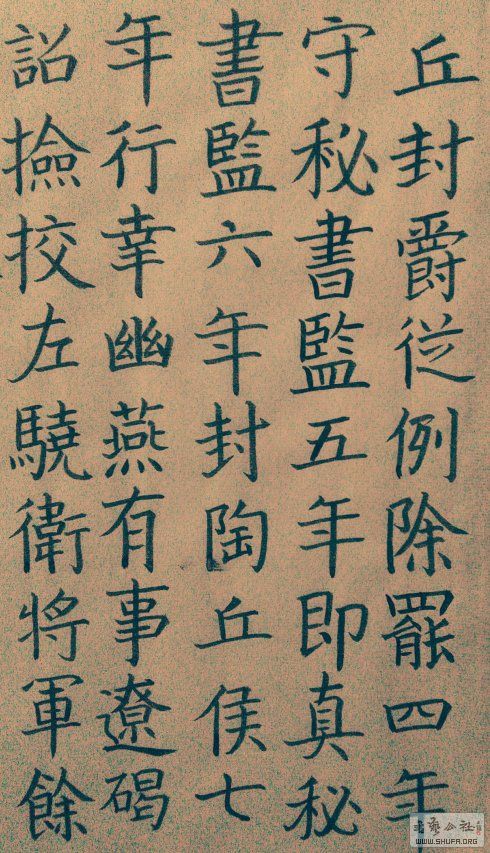 丘封爵從例除罷四年
守秘書監五年即真秘
書監六年封陶丘侯七
年行幸幽燕有事遼碣
詔撿挍左驍衛將軍餘
書藝公社
WWW.SHUFA.ORG